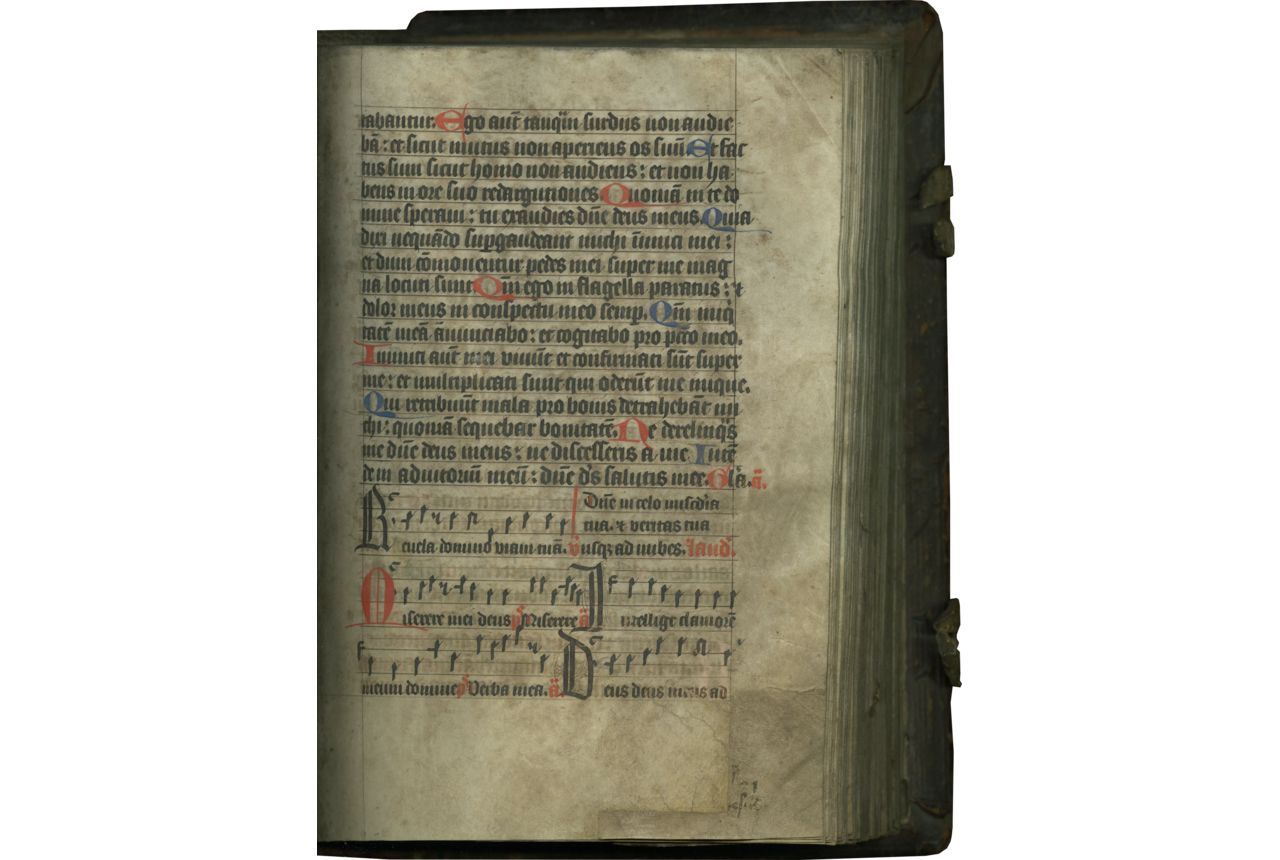 tabantur. Ego aut̄ tanq̄m surdus non audie
bā : et sicut mutus non aperiens os suū. Et fac
tus sum sicut homo non audiens : et non ha
bens in ore suo redargutiones. Quoniā in te do
mine speraui : tu exaudies dn̄e deus meus. Quia
dixi nequādo suꝑgaudeant michi inimici mei :
et dum cōmouentur pedes mei super me mag
na locuti sunt. Qm̄ ego in flagella paratus : ⁊
dolor meus in conspectu meo semꝑ. Qm̄ iniq
tatē meā ānunciabo : et cogitabo pro pctō meo.
Inimici aut̄ mei viuūt et confirmati sūt super
me : et multiplicati sunt qui oderūt me inique.
Qui retribuūt mala pro bonis detrahebāt mi
chi : quoniā sequebar bonitatē. Ne derelinq̄s
me dn̄e deus meus : ne discesseris a me. Inten
de in adiutoriū meū : dn̄e ds̄ salutis mee. Gl̄a. a̅.
Dn̄e in celo misc̄dia
tua. ⁊ veritas tua
Reuela domino viam tuā. v̄ usqꝫ ad nubes. laud̄.
Miserere mei deus p̄s Miserere a̅ Intellige clamorē
meum domine p̄s Verba mea. a̅. Deus deus meus ad